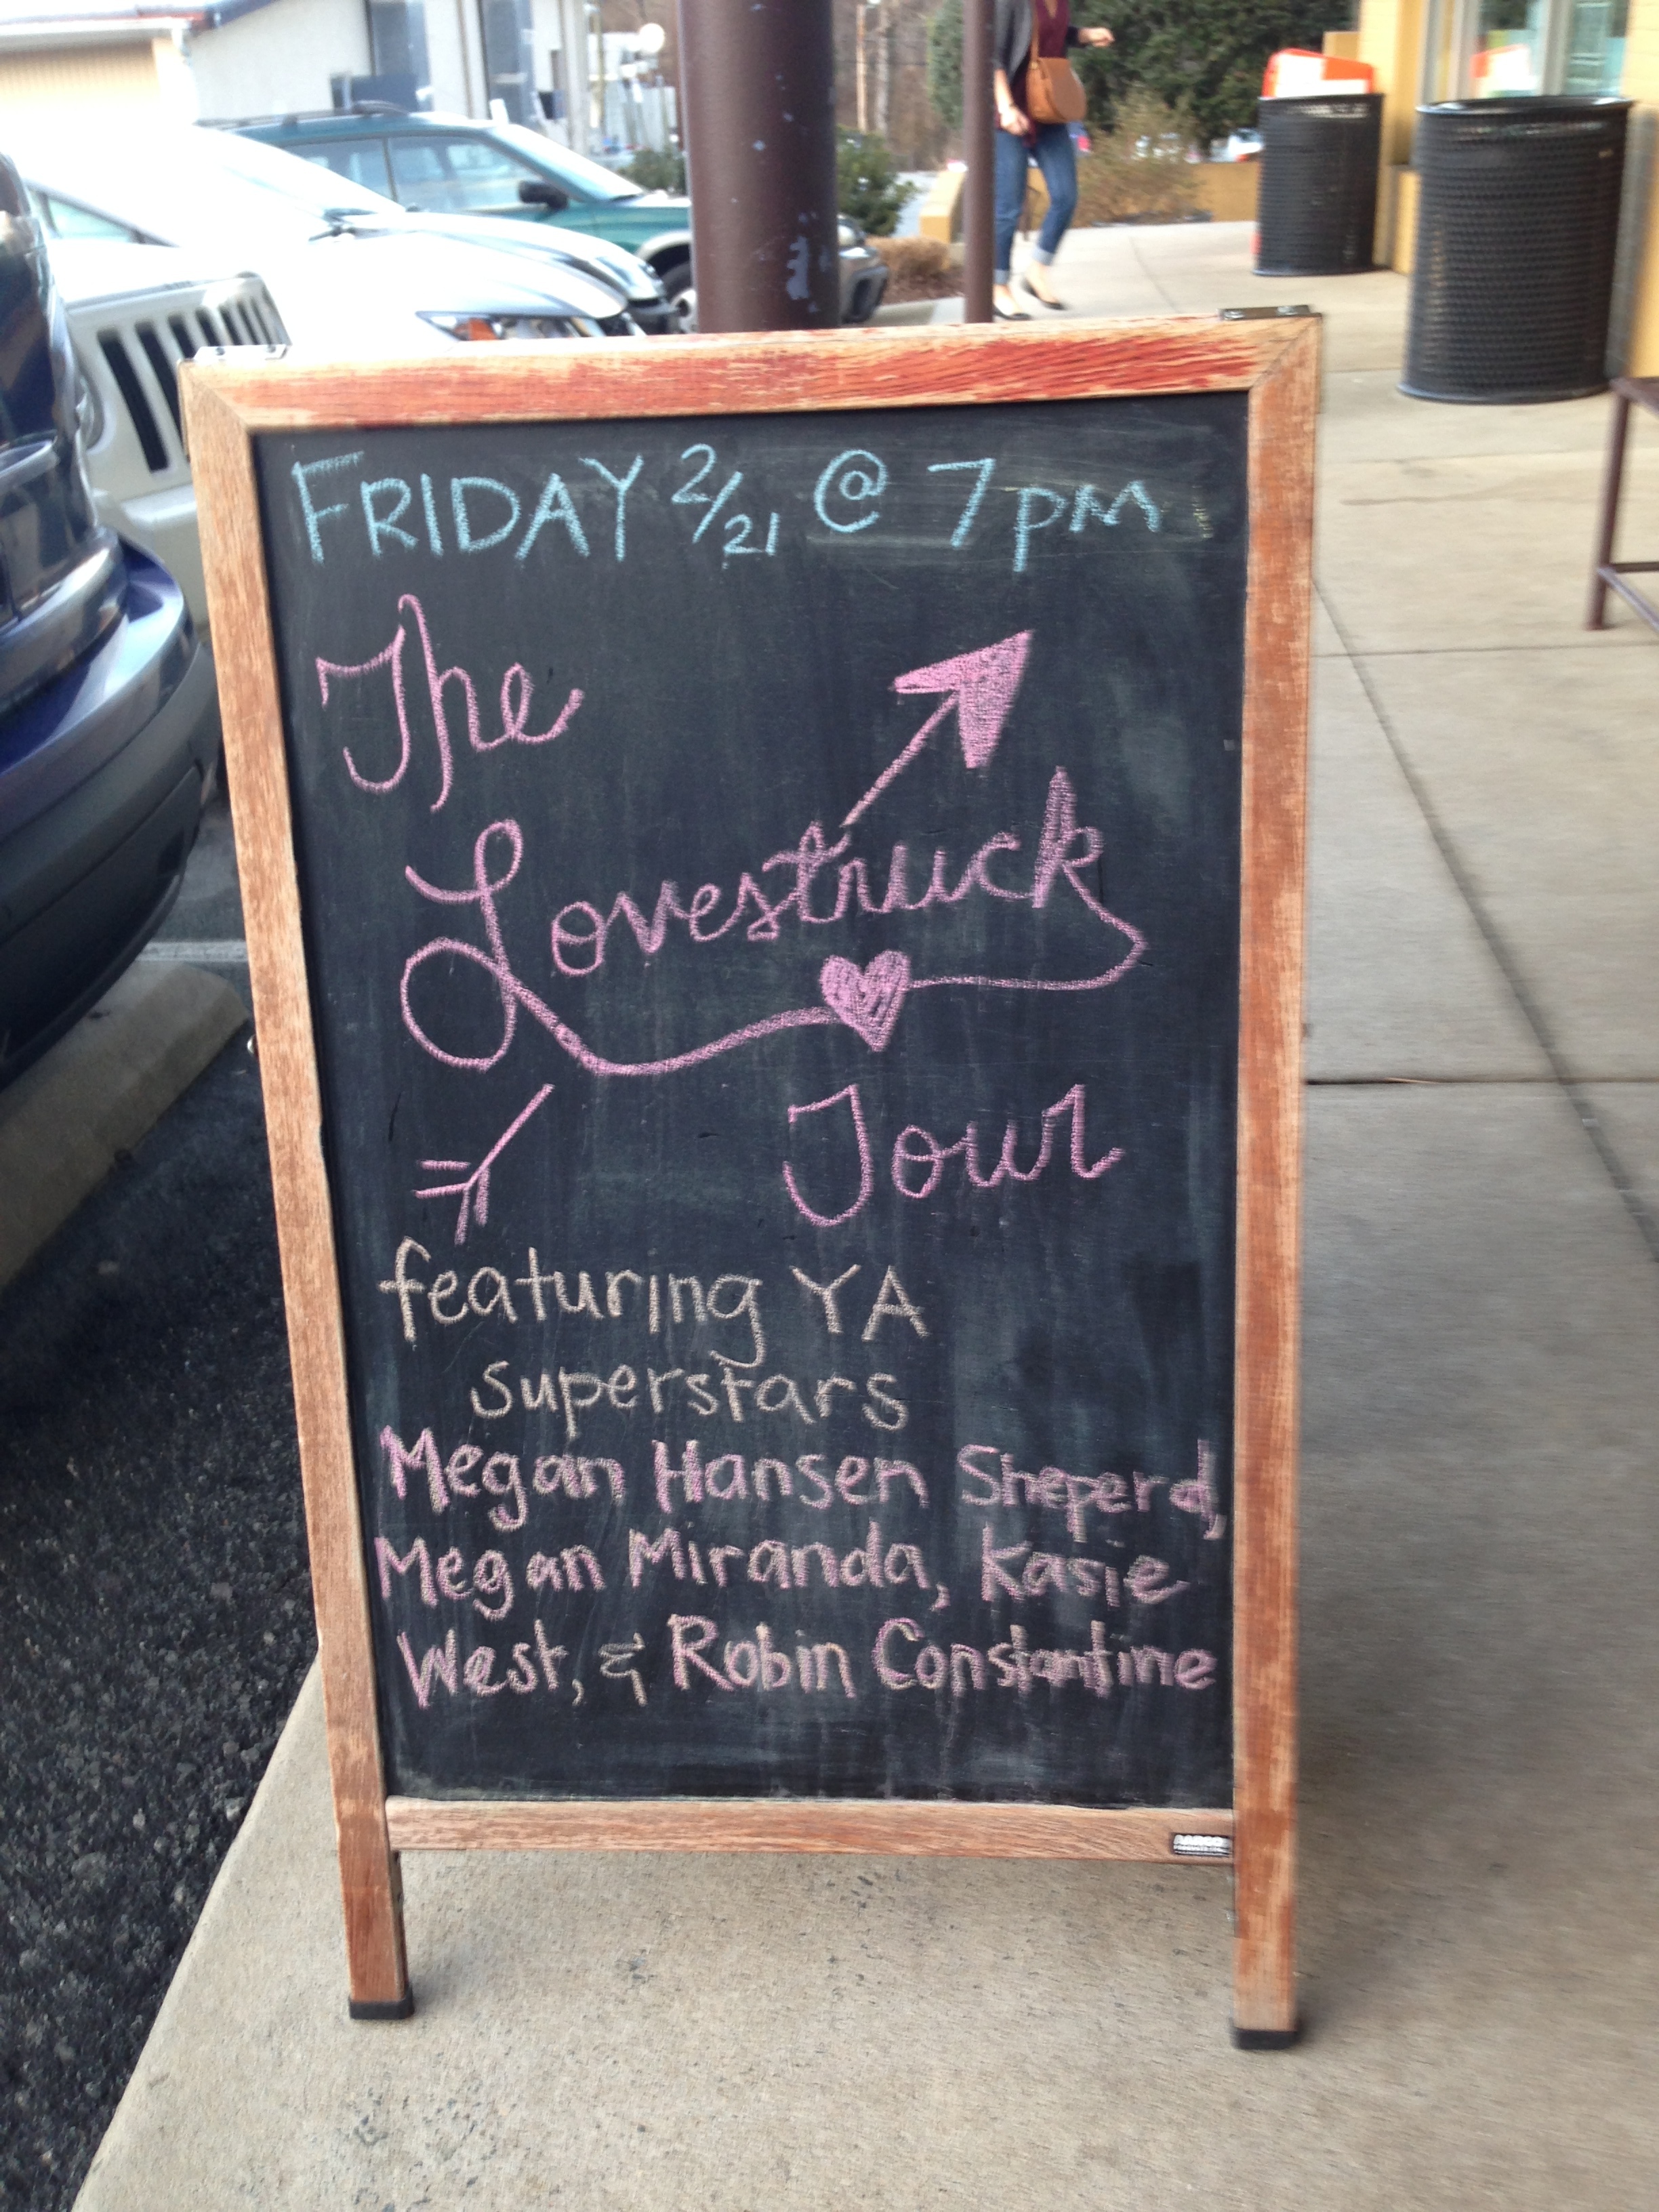 FRIDAY 2/21 @ 7pm
The
Lovestruck
Tour
featuring YA
superstars
Megan Hansen Sheperd,
Megan Miranda, Kasie
West, & Robin Constantine